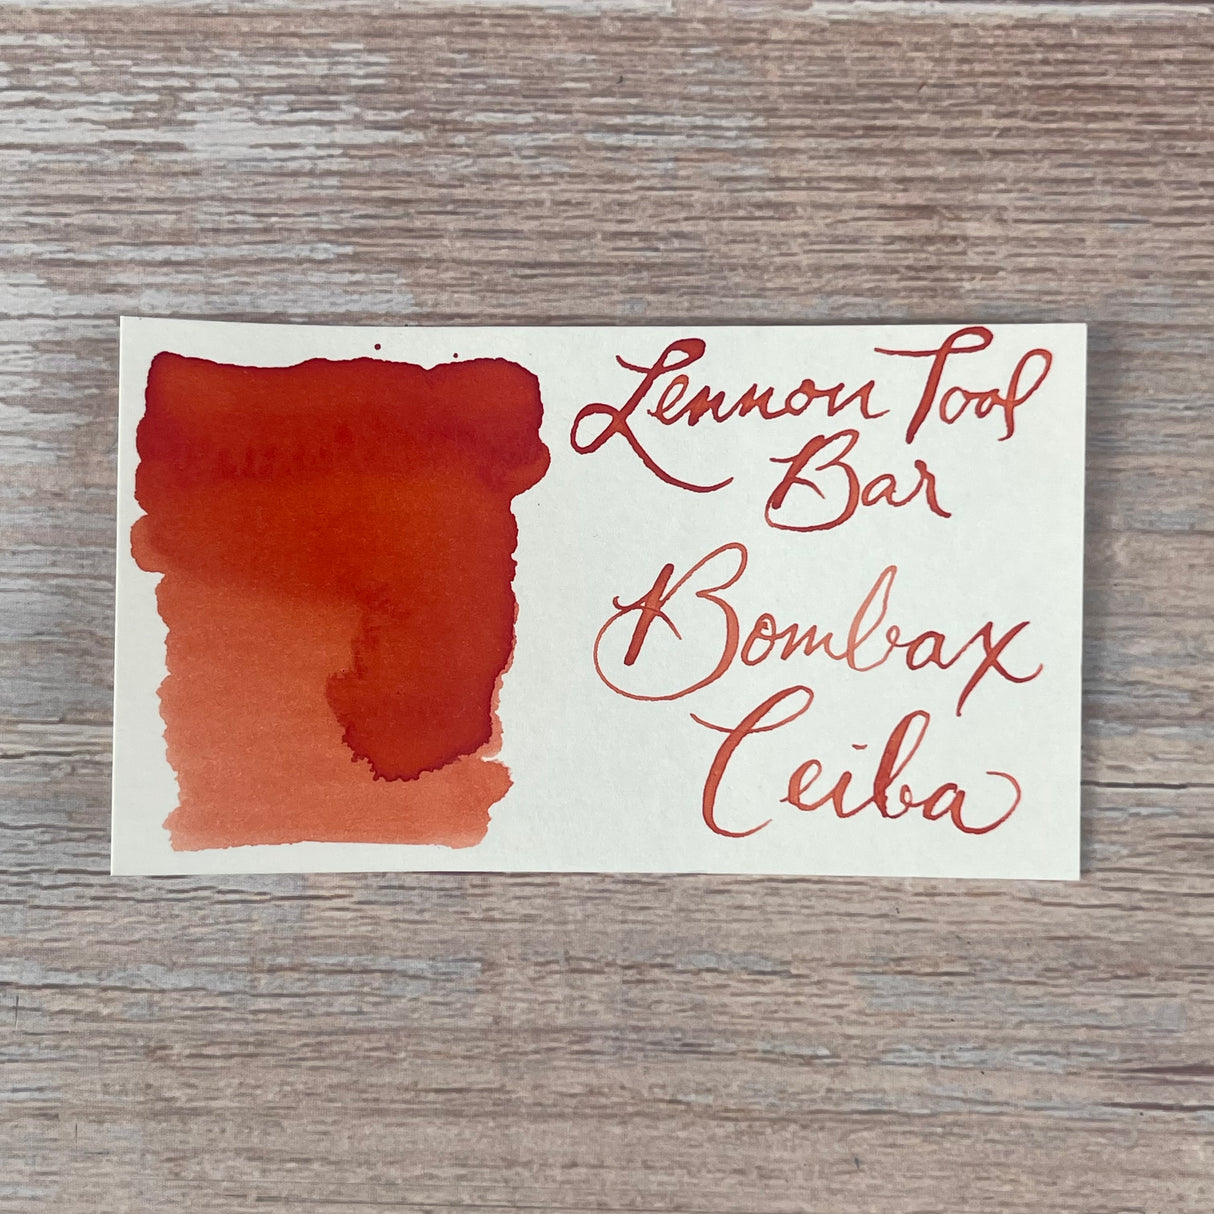 Lennon Tool
Bar
Bombax
Ceiba